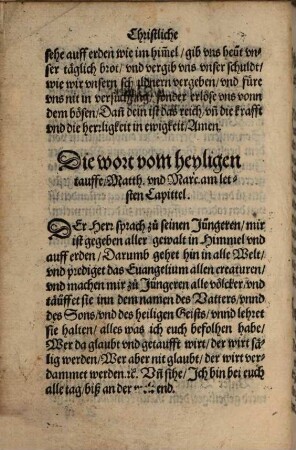 Christliche
sehe auff erden wie im him̃el / gib vns heüt vn-
ser täglich brot / vnd vergib vns vnser schuldt /
wie wir vnsern schuldnern vergeben / vnd füre
vns nit in versuchung / sonder erlöse vns vonn
dem bösen / Dañ dein ist das reich / vñ die krafft
vnd die herrligkeit in ewigkeit / Amen.
Die wort vom heyligen
tauffe / Matth. vnd Marc. am let-
sten Capittel.
DEr Herr sprach zů seinen Jüngeren / mir
ist gegeben aller gewalt in Himmel vnd
auff erden / Darumb gehet hin in alle Welt /
vnd prediget das Euangelium allen creaturen /
vnd machen mir zů Jüngeren alle völcker / vnd
täüffet sie inn dem namen des Vatters / vnnd
des Sons / vnd des heiligen Geists / vnnd lehret
sie halten / alles was ich euch befolhen habe /
Wer da glaubt vnd getaufft wirt / der wirt sä-
lig werden / Wer aber nit glaubt / der wirt ver-
dammet werden. ꝛc. Vñ sihe / Ich bin bei euch
alle tag / biß an der end.